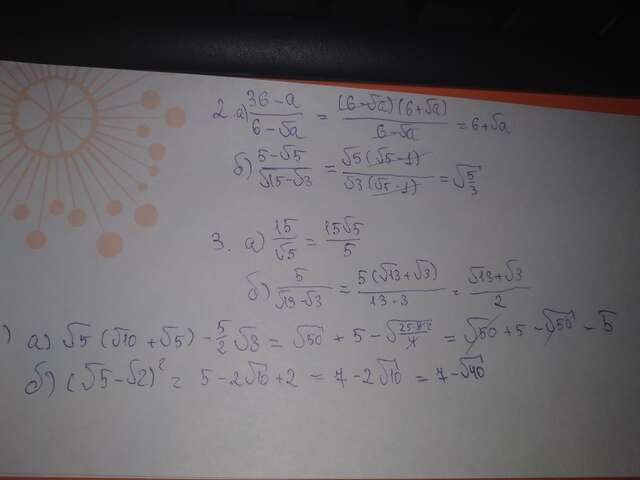 2. а) (36-a)/(6-√a) = ((6-√a)(6+√a))/(6-√a) = 6+√a
б) (5-√5)/(√15-√3) = (√5(√5-1))/(√3(√5-1)) = √(5/3)
3. а) 15/√5 = 15√5/5
б) 5/(√13-√3) = 5(√13+√3)/(13-3) = (√13+√3)/2
) а) √5 (√10 + √5) - 5/2 √8 = √50 + 5 - √(25·8/4) = √50 + 5 - √50 = 5
б) (√5-√2)² = 5-2√10+2 = 7-2√10 = 7-√40